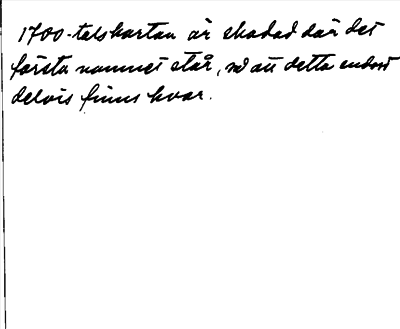 1700-talskartan är skadad där det
första namnet står, så att detta endast
delvis finns kvar.